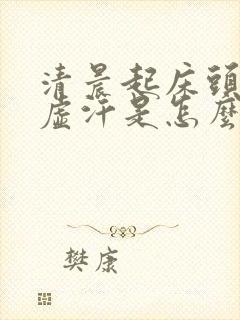 清晨起床頭
虛汗是怎麼
樊康